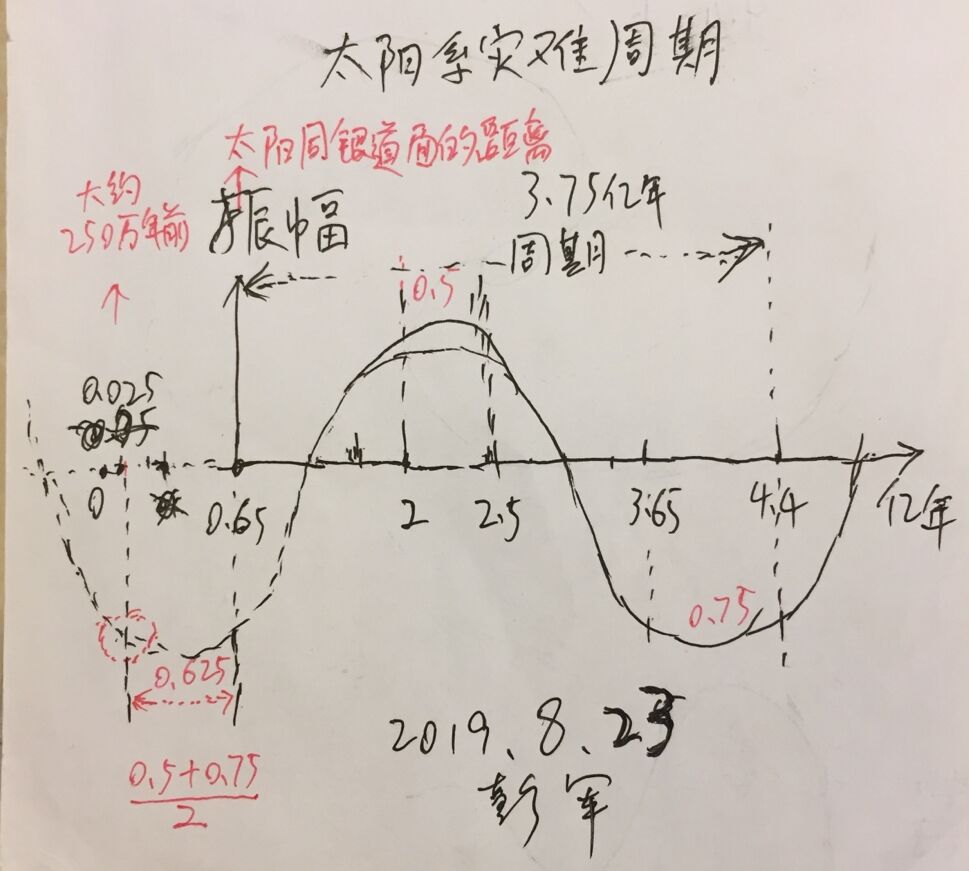 太阳系灾难周期
太阳同银道面的距离
大约
250万年前
振幅
3.75亿年
周期
0.5
0.025
0
0.65
2
2.5
3.65
4.4
亿年
0.75
0.625
0.5+0.75
2
2019.8.23
彭军